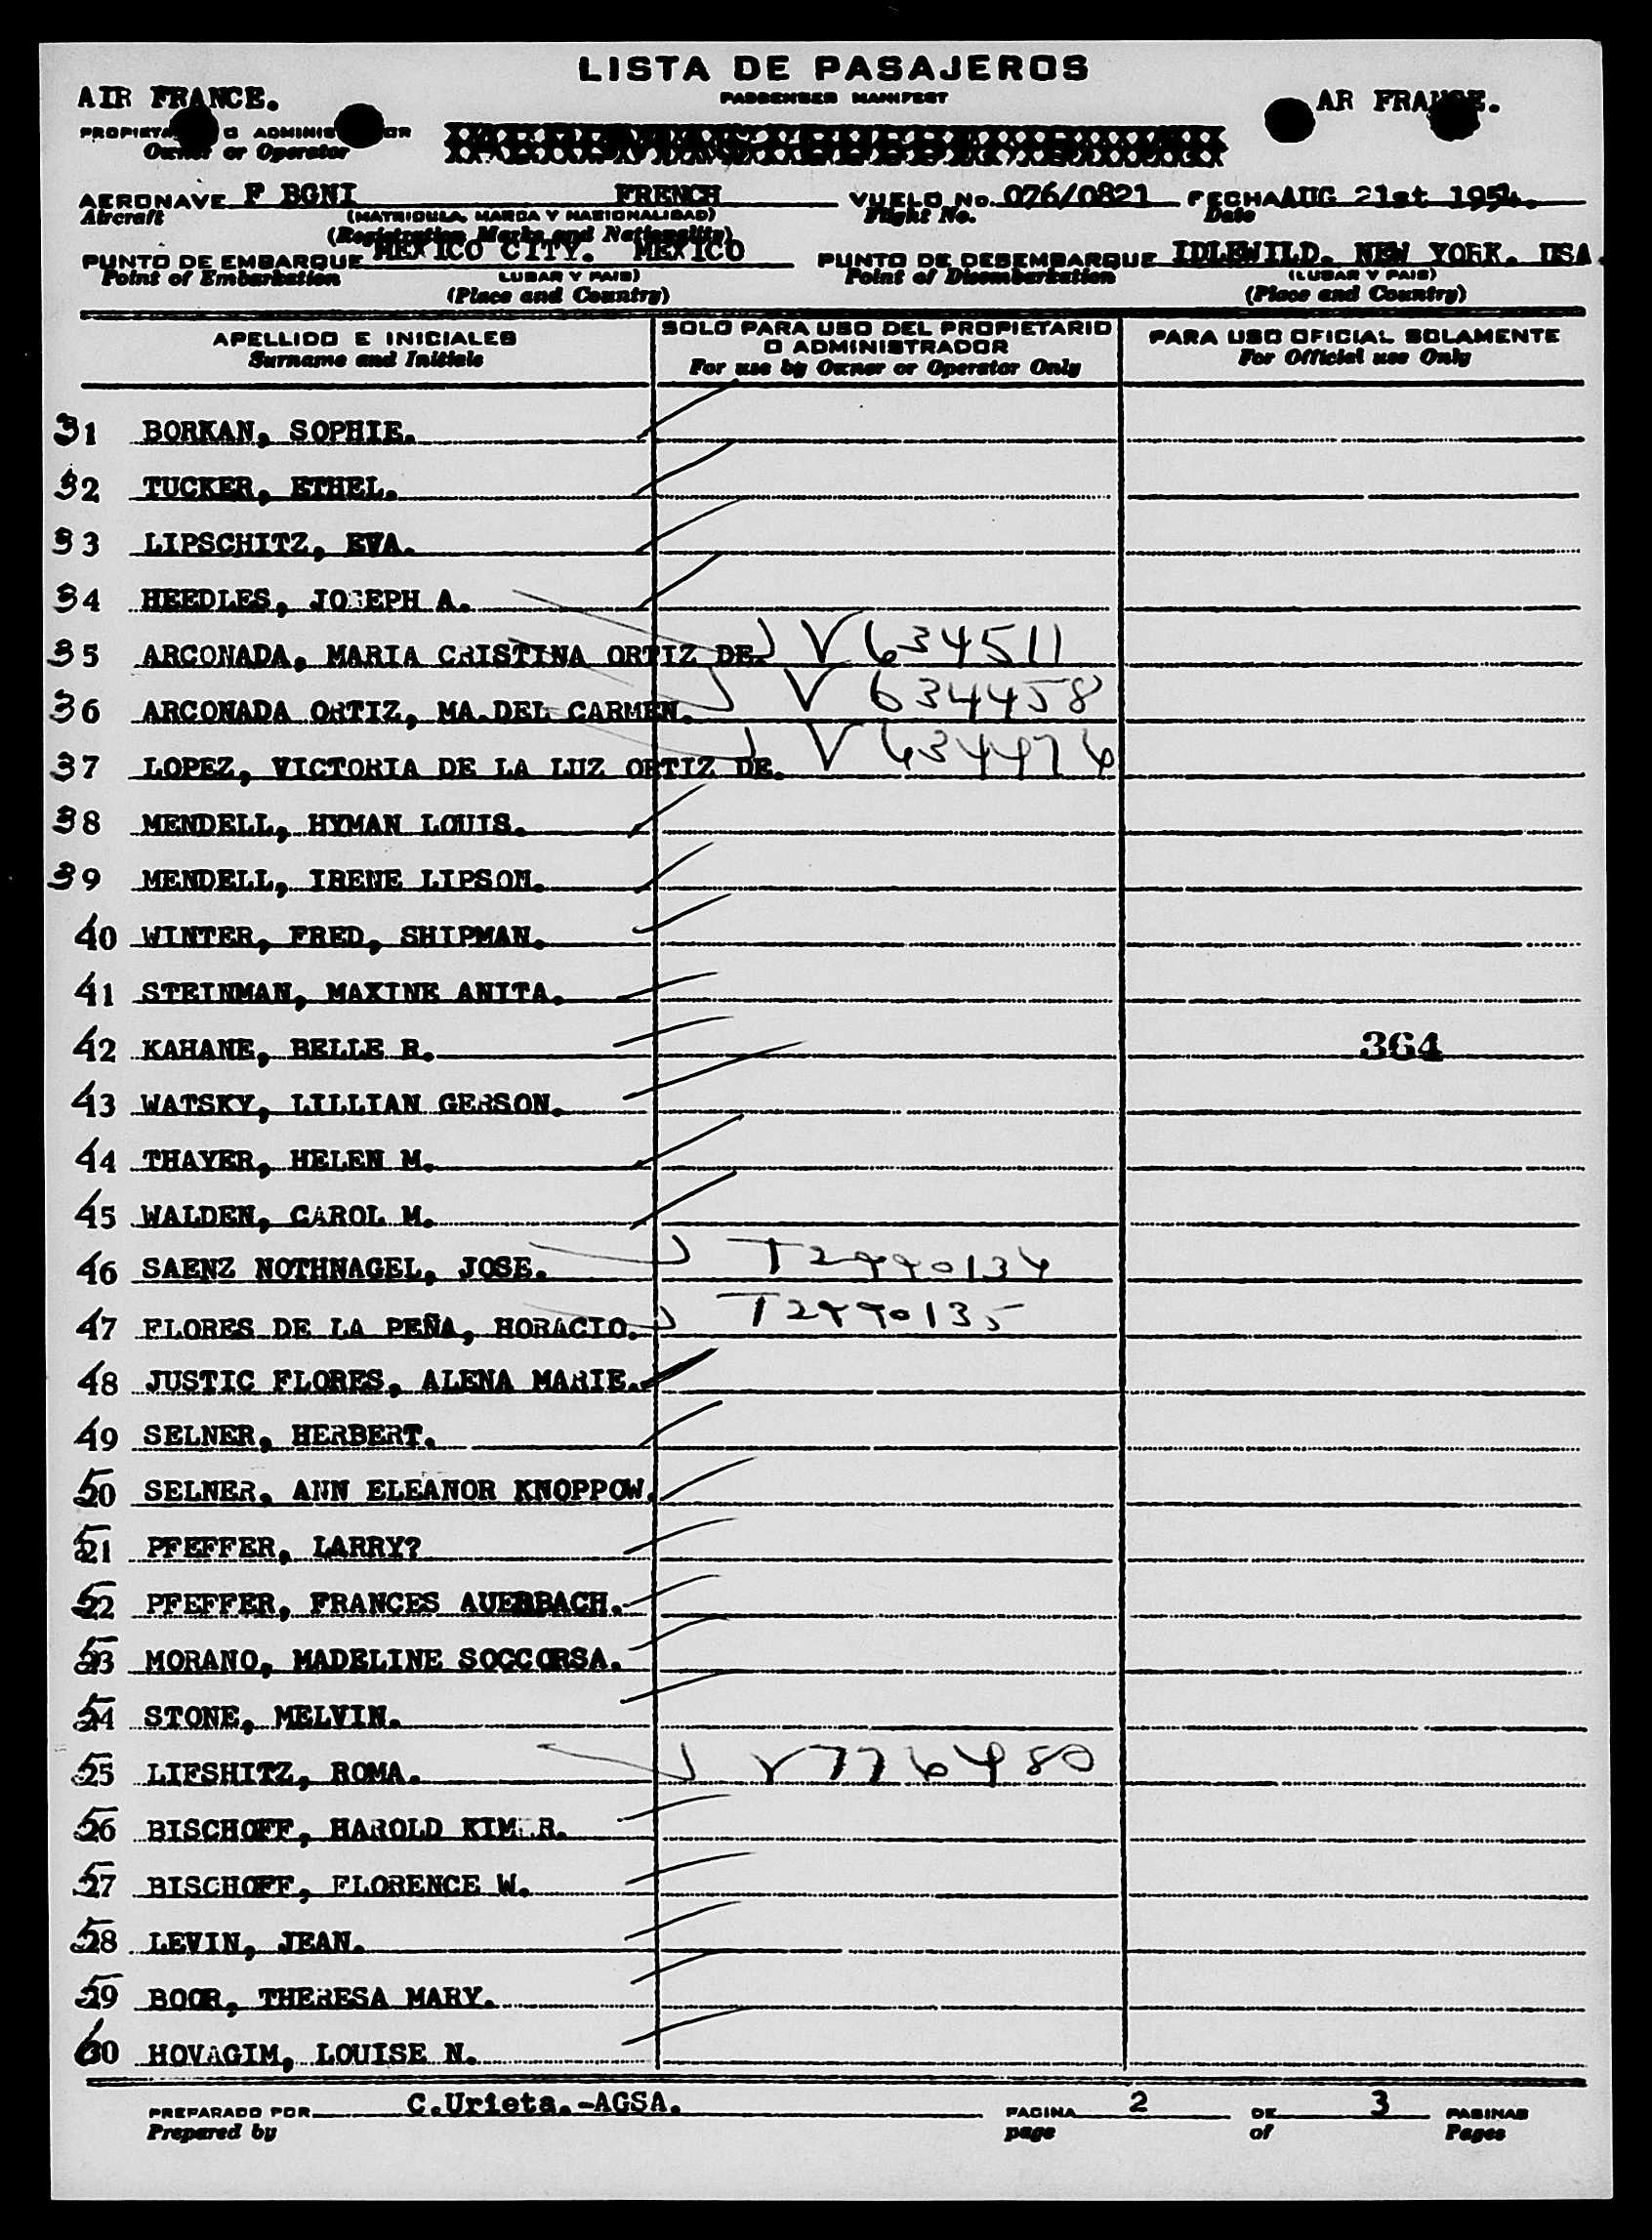 LISTA DE PASAJEROS
PASSENGER MANIFEST
AIR FRANCE.
AR FRANCE.
PROPIETARIO O ADMINISTRADOR
Owner or Operator
AERONAVE F BGNI FRENCH VUELO No. 076/0821 FECHA AUG 21st 1954.
Aircraft (MATRICULA, MARCA Y NACIONALIDAD) Flight No. Date
(Registration Marks and Nationality)
PUNTO DE EMBARQUE MEXICO CITY. MEXICO PUNTO DE DESEMBARQUE IDLEWILD. NEW YORK. USA.
Point of Embarkation (LUGAR Y PAIS) Point of Disembarkation (LUGAR Y PAIS)
(Place and Country) (Place and Country)
APELLIDO E INICIALES SOLO PARA USO DEL PROPIETARIO O ADMINISTRADOR PARA USO OFICIAL SOLAMENTE
Surname and Initials For use by Owner or Operator Only For Official use Only
31 BORKAN, SOPHIE.
32 TUCKER, ETHEL.
33 LIPSCHITZ, EVA.
34 HEEDLES, JOSEPH A.
35 ARCONADA, MARIA CRISTINA ORTIZ DE. V634511
36 ARCONADA ORTIZ, MA.DEL CARMEN. V 634458
37 LOPEZ, VICTORIA DE LA LUZ ORTIZ DE. V 634476
38 MENDELL, HYMAN LOUIS.
39 MENDELL, IRENE LIPSON.
40 WINTER, FRED, SHIPMAN.
41 STEINMAN, MAXINE ANITA.
42 KAHANE, BELLE R. 364
43 WATSKY, LILLIAN GERSON.
44 THAYER, HELEN M.
45 WALDEN, CAROL M.
46 SAENZ NOTHNAGEL, JOSE. T2990134
47 FLORES DE LA PEÑA, HORACIO. T2990135
48 JUSTIC FLORES, ALENA MARIE.
49 SELNER, HERBERT.
50 SELNER, ANN ELEANOR KNOPPOW.
51 PFEFFER, LARRY?
52 PFEFFER, FRANCES AUERBACH.
53 MORANO, MADELINE SOCCORSA.
54 STONE, MELVIN.
55 LIFSHITZ, ROMA. V776480
56 BISCHOFF, HAROLD
57 BISCHOFF, FLORENCE W.
58 LEVIN, JEAN.
59 BOOR, THERESA MARY.
60 HOVAGIM, LOUISE N.
PREPARADO POR C.Urieta.-AGSA. PAGINA 2 DE 3 PAGINAS
Prepared by page of Pages